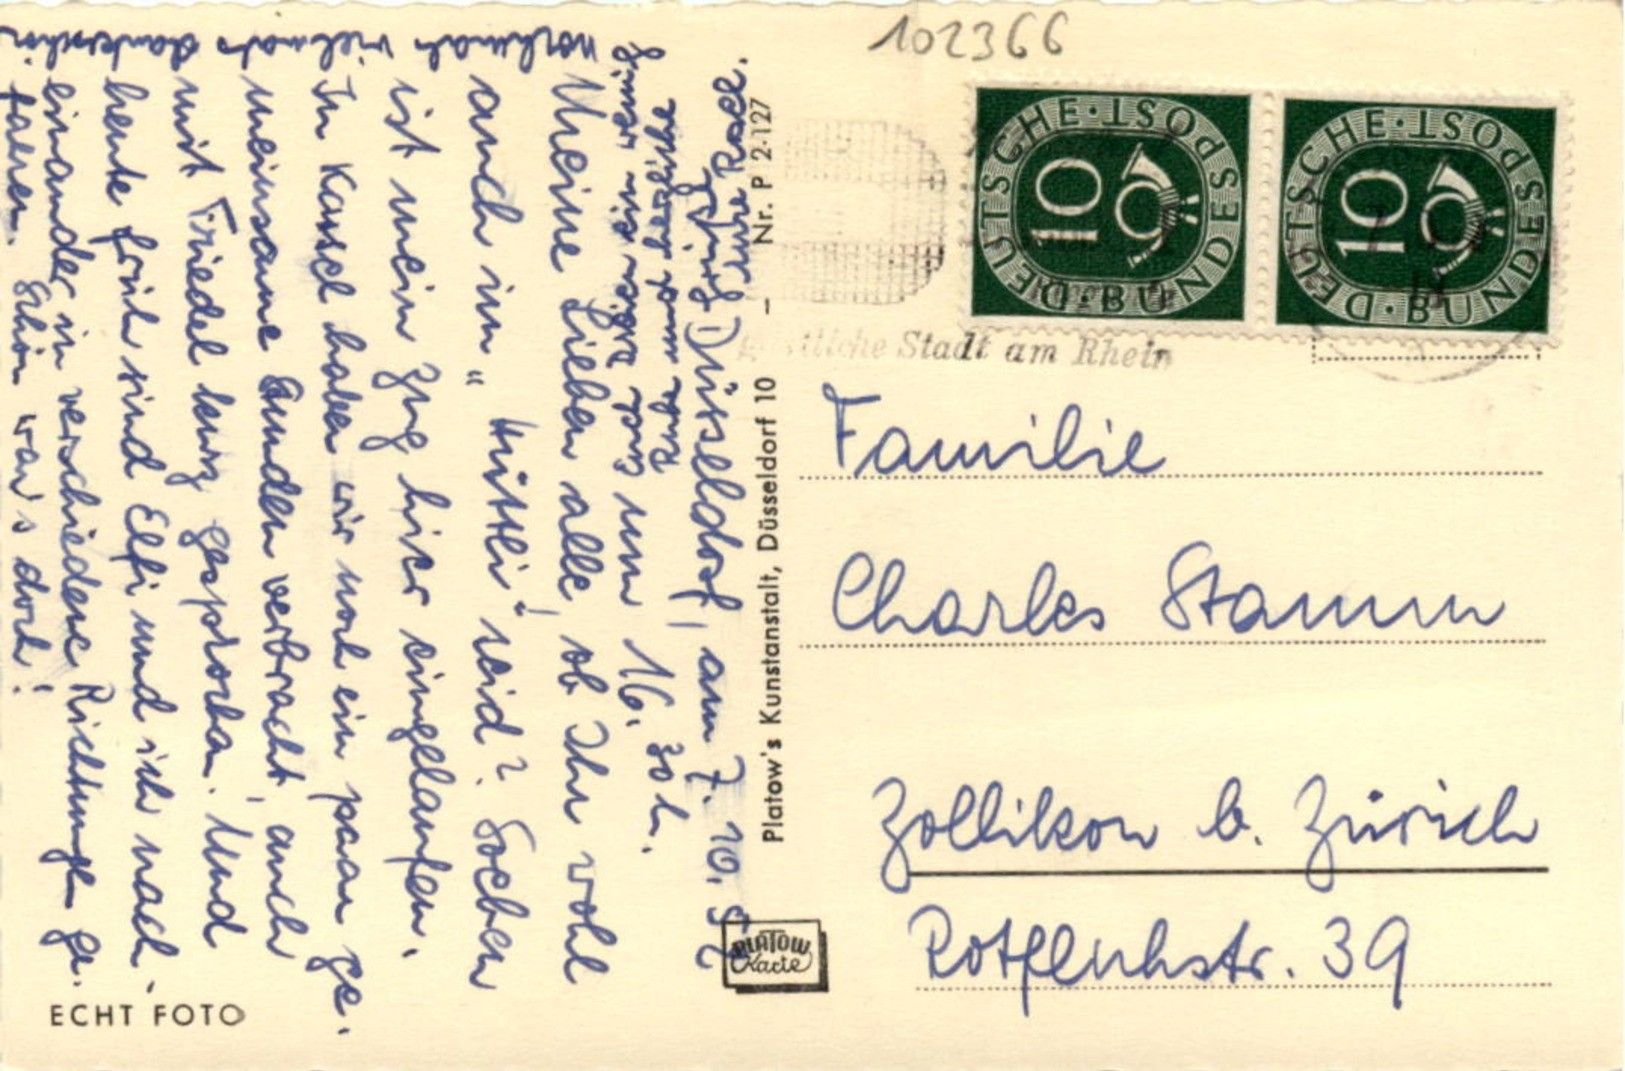 102366
DEUTSCHE · BUNDESPOST
10
DEUTSCHE · BUNDESPOST
10
Stadt am Rhein
Familie
Charles Stamm
Zollikon b. Zürich
Rotfluhstr. 39
Platow's Kunstanstalt, Düsseldorf 10 – Nr. P 2-127
PLATOW
Karte
ECHT FOTO
Düsseldorf, am 7. 10. 52
um 16. 30 h.
Meine Lieben alle, ob Ihr wohl
auch im "Hüttli" seid? Soeben
ist mein Zug hier eingelaufen.
In Kassel haben wir noch ein paar ge-
meinsame Stunden verbracht, auch
mit Friedel kurz gesprochen. Und
heute früh sind Elfi und ich nach
einander in verschiedene Richtungen ge-
fahren. Schön war's dort!
nochmals vielmals Dankeschön
und herzliche
Eure